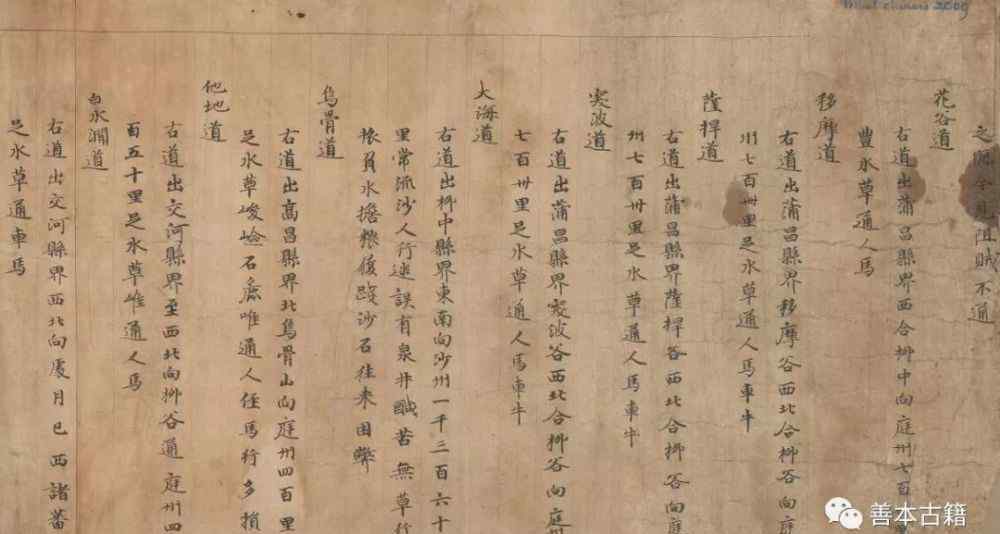 Pelliot chinois 2009
之阻賊不通
花谷道
右道出蒲昌縣界西合柳中向庭州七百里
豐水草通人馬
移摩道
右道出蒲昌縣界移摩谷西北合柳谷向庭
州七百卌里足水草通人馬車牛
薩捍道
右道出蒲昌縣界薩捍谷西北合柳谷向庭
州七百卌里足水草通人馬車牛
突波道
右道出蒲昌縣界突波谷西北合柳谷向庭州
七百卌里足水草通人馬車牛
大海道
右道出柳中縣界東南向沙州一千三百六十
里常流沙人行迷誤有泉井鹹苦無草行
旅負水擔粮履踐沙石往來困弊
烏骨道
右道出高昌縣界北烏骨山向庭州四百里
足水草峻嶮石麁唯通人徑馬行多損
他地道
右道出交河縣界至西北向柳谷通庭州四
百五十里足水草唯通人馬
白水澗道
右道出交河縣界西北向處月已西諸蕃
足水草通車馬
善本古籍